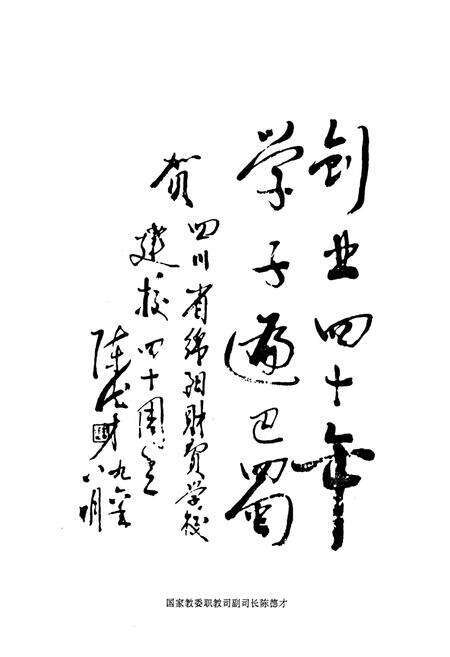 创业四十年
学子遍巴蜀
贺
四川省绵阳财贸学校
建校四十周年
陈
才
九六年
八月
国家教委职教司副司长陈
才